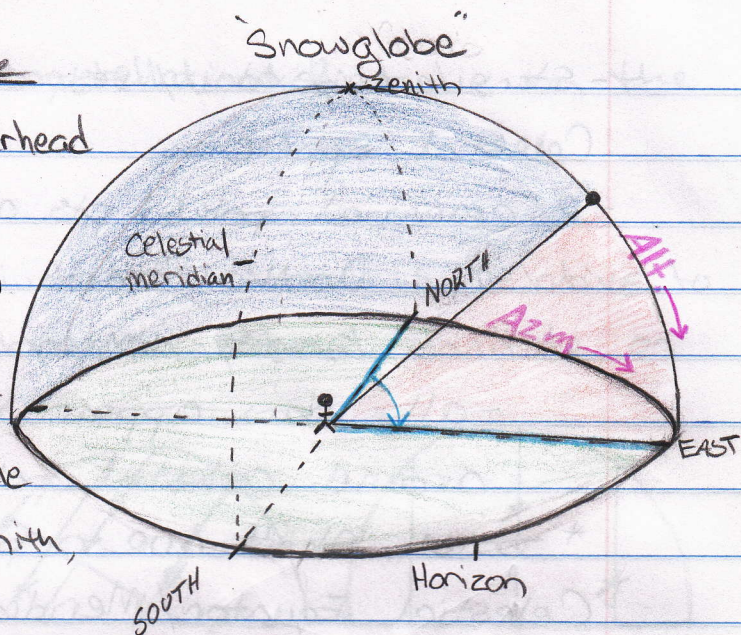 "Snowglobe"
zenith
rhead
Celestial
meridian
NORTH
Alt.
Azm
EAST
SOUTH
Horizon